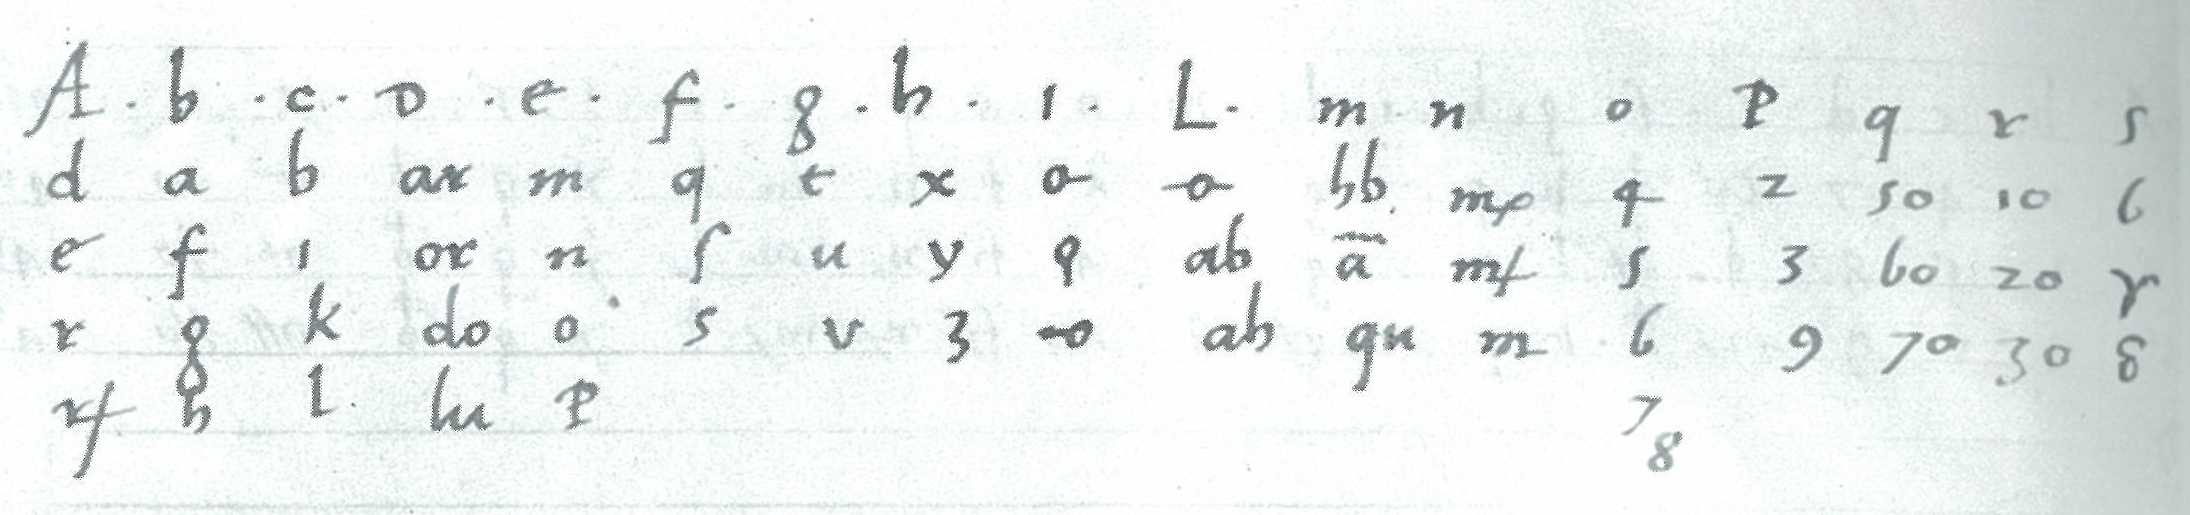 A . b . c . D . e . f . g . h . i . L . m n o P q r s
d a b ar m q t x o- -o- bb mp 4 2 50 10 6
e f i or n ſ u y q ab ā mf 5 3 60 20 r
r g k do o s v 3 -o ah qu m 6 9 70 30 8
rf h l. lu P 7
8